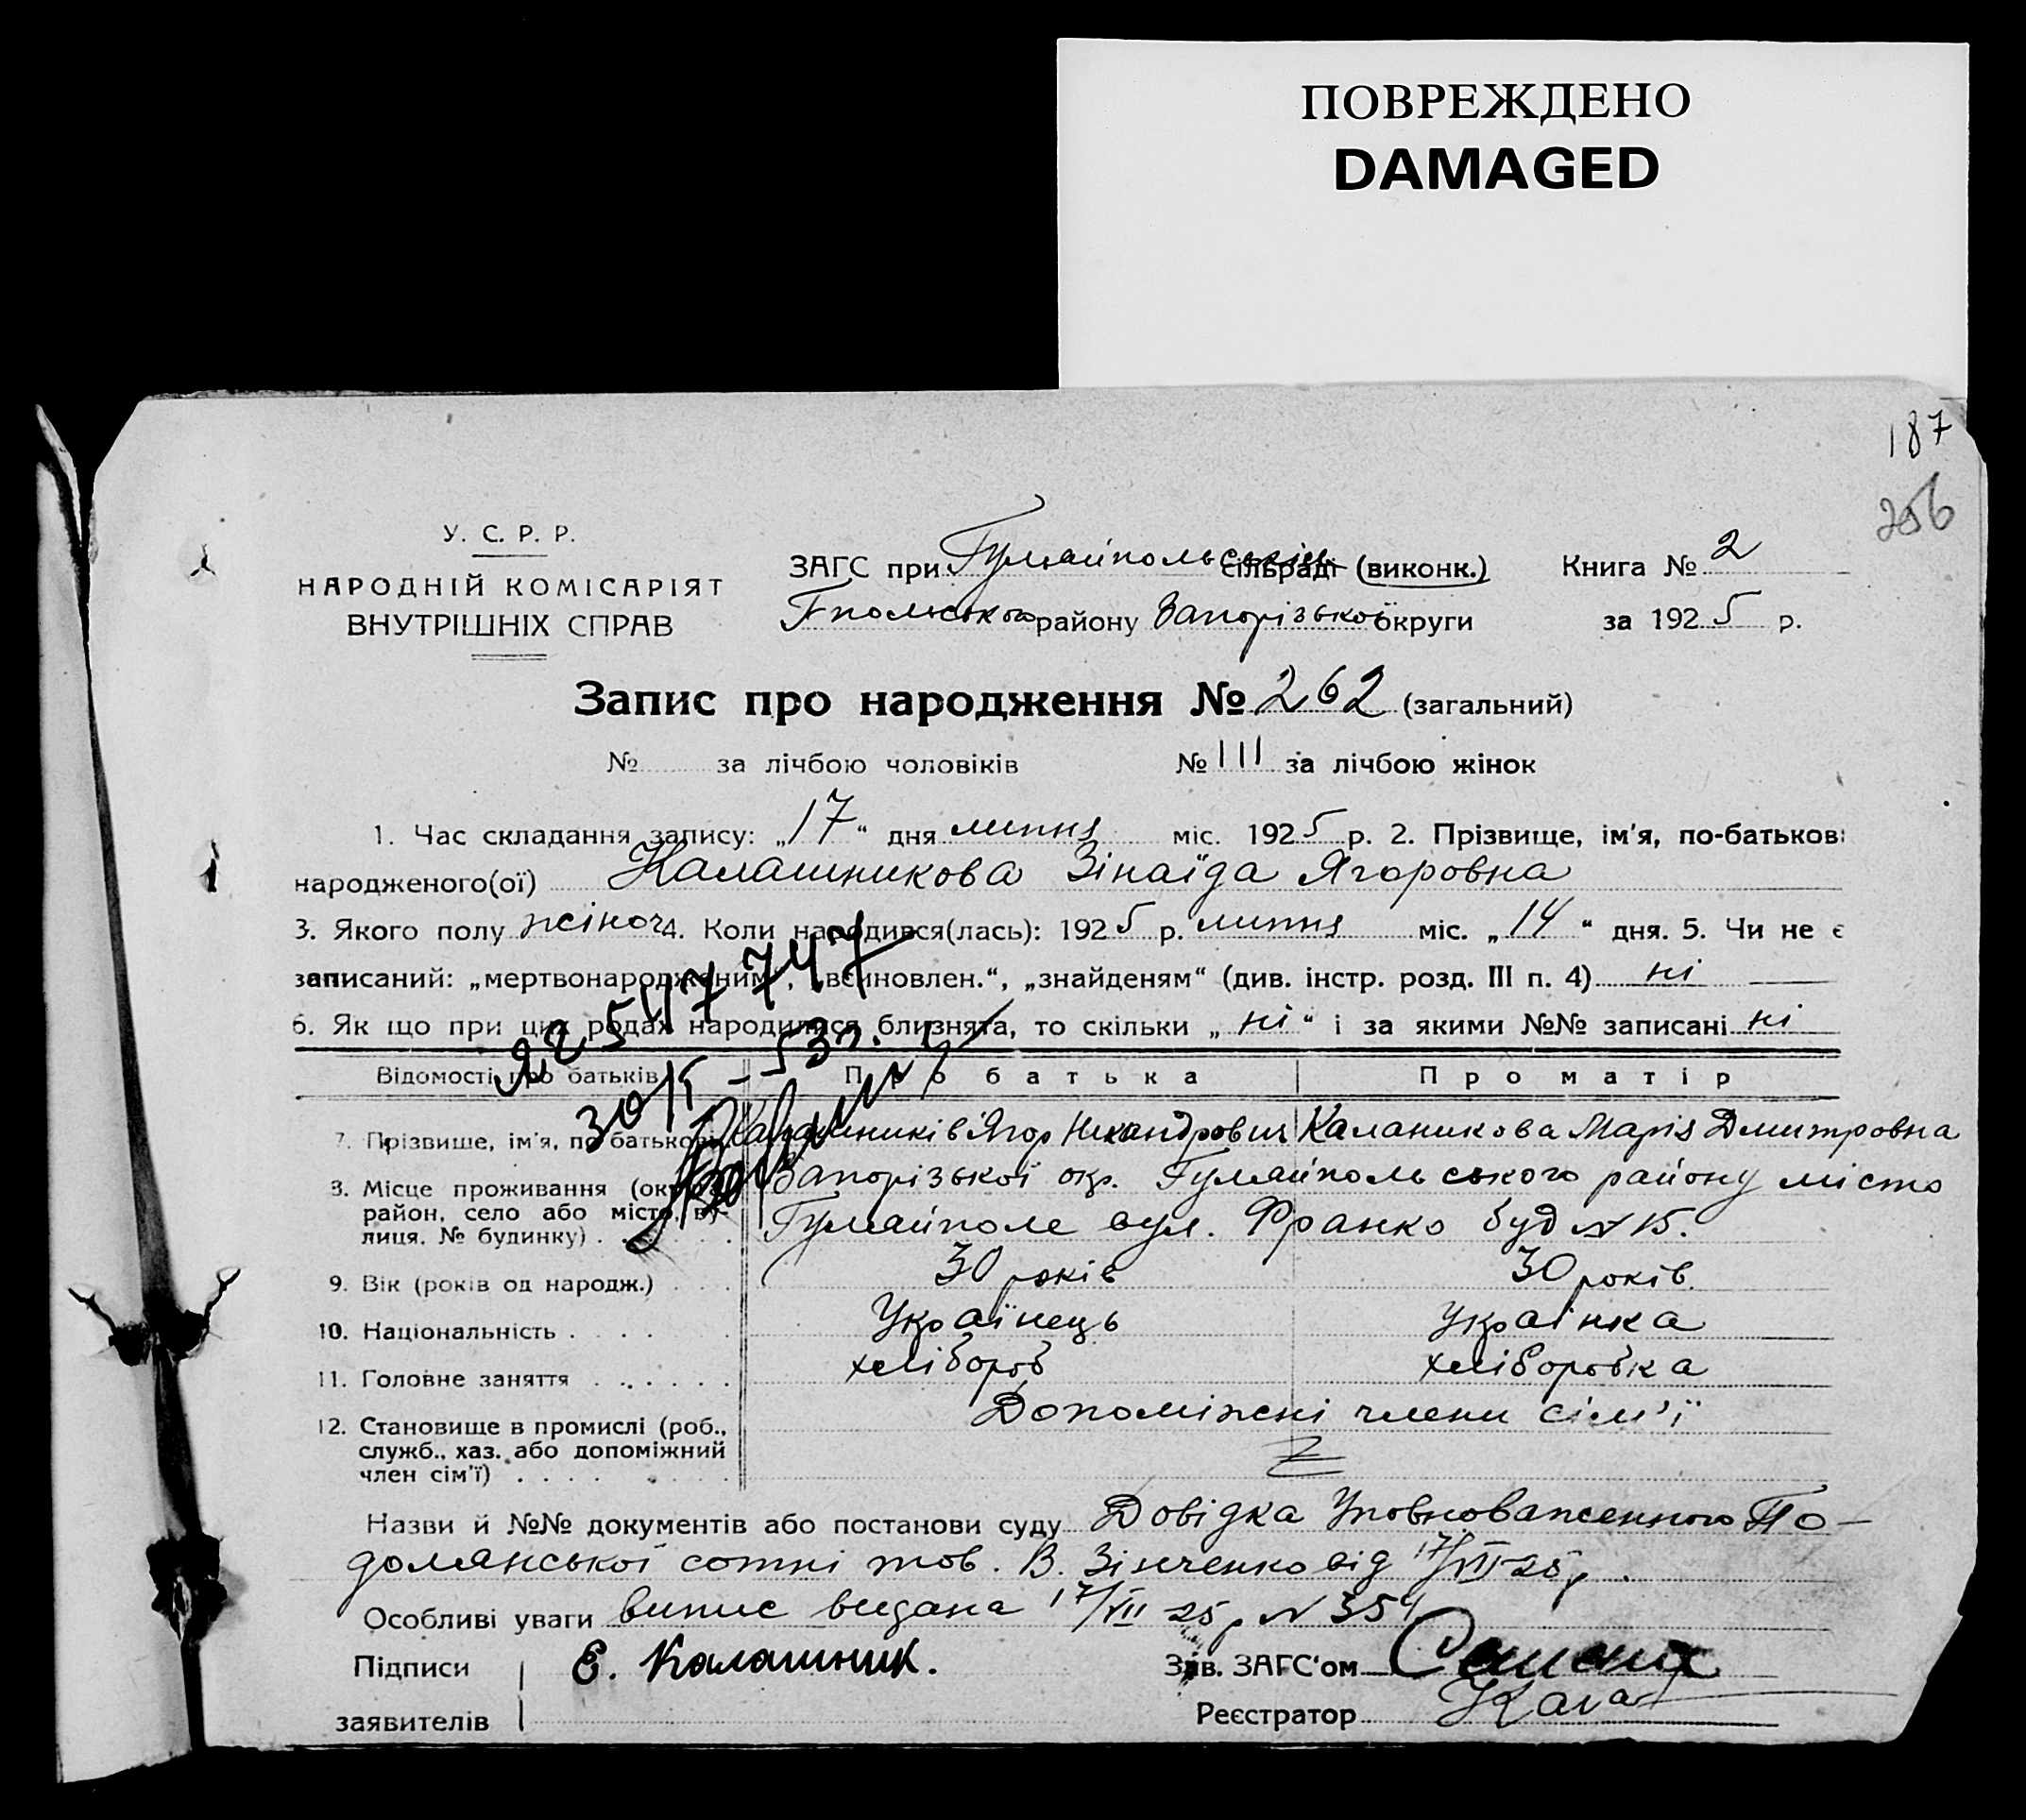 ПОВРЕЖДЕНО
DAMAGED
187
256
У. С. Р. Р.
НАРОДНІЙ КОМІСАРІЯТ
ВНУТРІШНІХ СПРАВ
ЗАГС при Гуляйпольськім сільраді (виконк.) Книга № 2
Гпольського району Запорізької округи за 1925 р.
Запис про народження № 262 (загальний)
№ за лічбою чоловіків № 111 за лічбою жінок
1. Час складання запису: „17“ дня липня міс. 1925 р. 2. Прізвище, ім'я, по-батькові
народженого(ої) Калашникова Зінаїда Ягоровна
3. Якого полу жіноч 4. Коли народився(лась): 1925 р. липня міс. „14“ дня. 5. Чи не є
записаний: „мертвонародженим“, „всиновлен.“, „знайденям“ (див. інстр. розд. III п. 4) ні
6. Як що при цих родах народилися близнята, то скільки „ні“ і за якими №№ записані ні
547747
30/V – 53г.
Відомості про батьків Про батька Про матір
7. Прізвище, ім'я, по батькові Калашників Ягор Никандрович Каланикова Марія Дмитровна
8. Місце проживання (округа, Запорізької окр. Гуляйпольського району місто
район, село або місто, ву-
лиця, № будинку) . . . Гуляйполе вул. Франко буд № 15.
9. Вік (років од народж.) . . . 30 років 30 років.
10. Національність . . . . Українець Українка
11. Головне заняття . . . . . . хлібороб хліборобка
12. Становище в промислі (роб., Допоміжні члени сім'ї
служб., хаз. або допоміжний
член сім'ї) . . . .
Назви й №№ документів або постанови суду Довідка Уповноваженного По-
долянської сотні тов. В. Зінченко від 17/VII-25р.
Особливі уваги випис видана 17/VII 25р № 354
Підписи Е. Калашник. Зав. ЗАГС'ом
заявителів Реєстратор